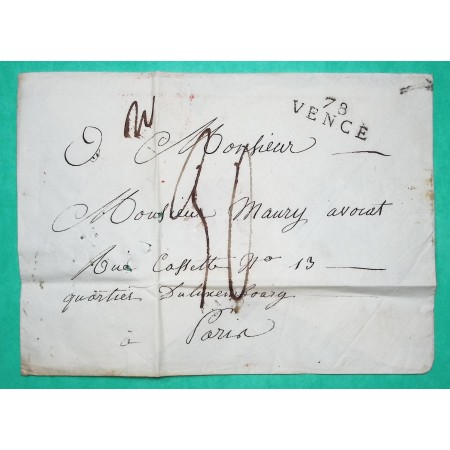 78
VENCE
A Monsieur
Monsieur Maury avocat
Rue Cassette No 13
quartier Duluxembourg
à Paris